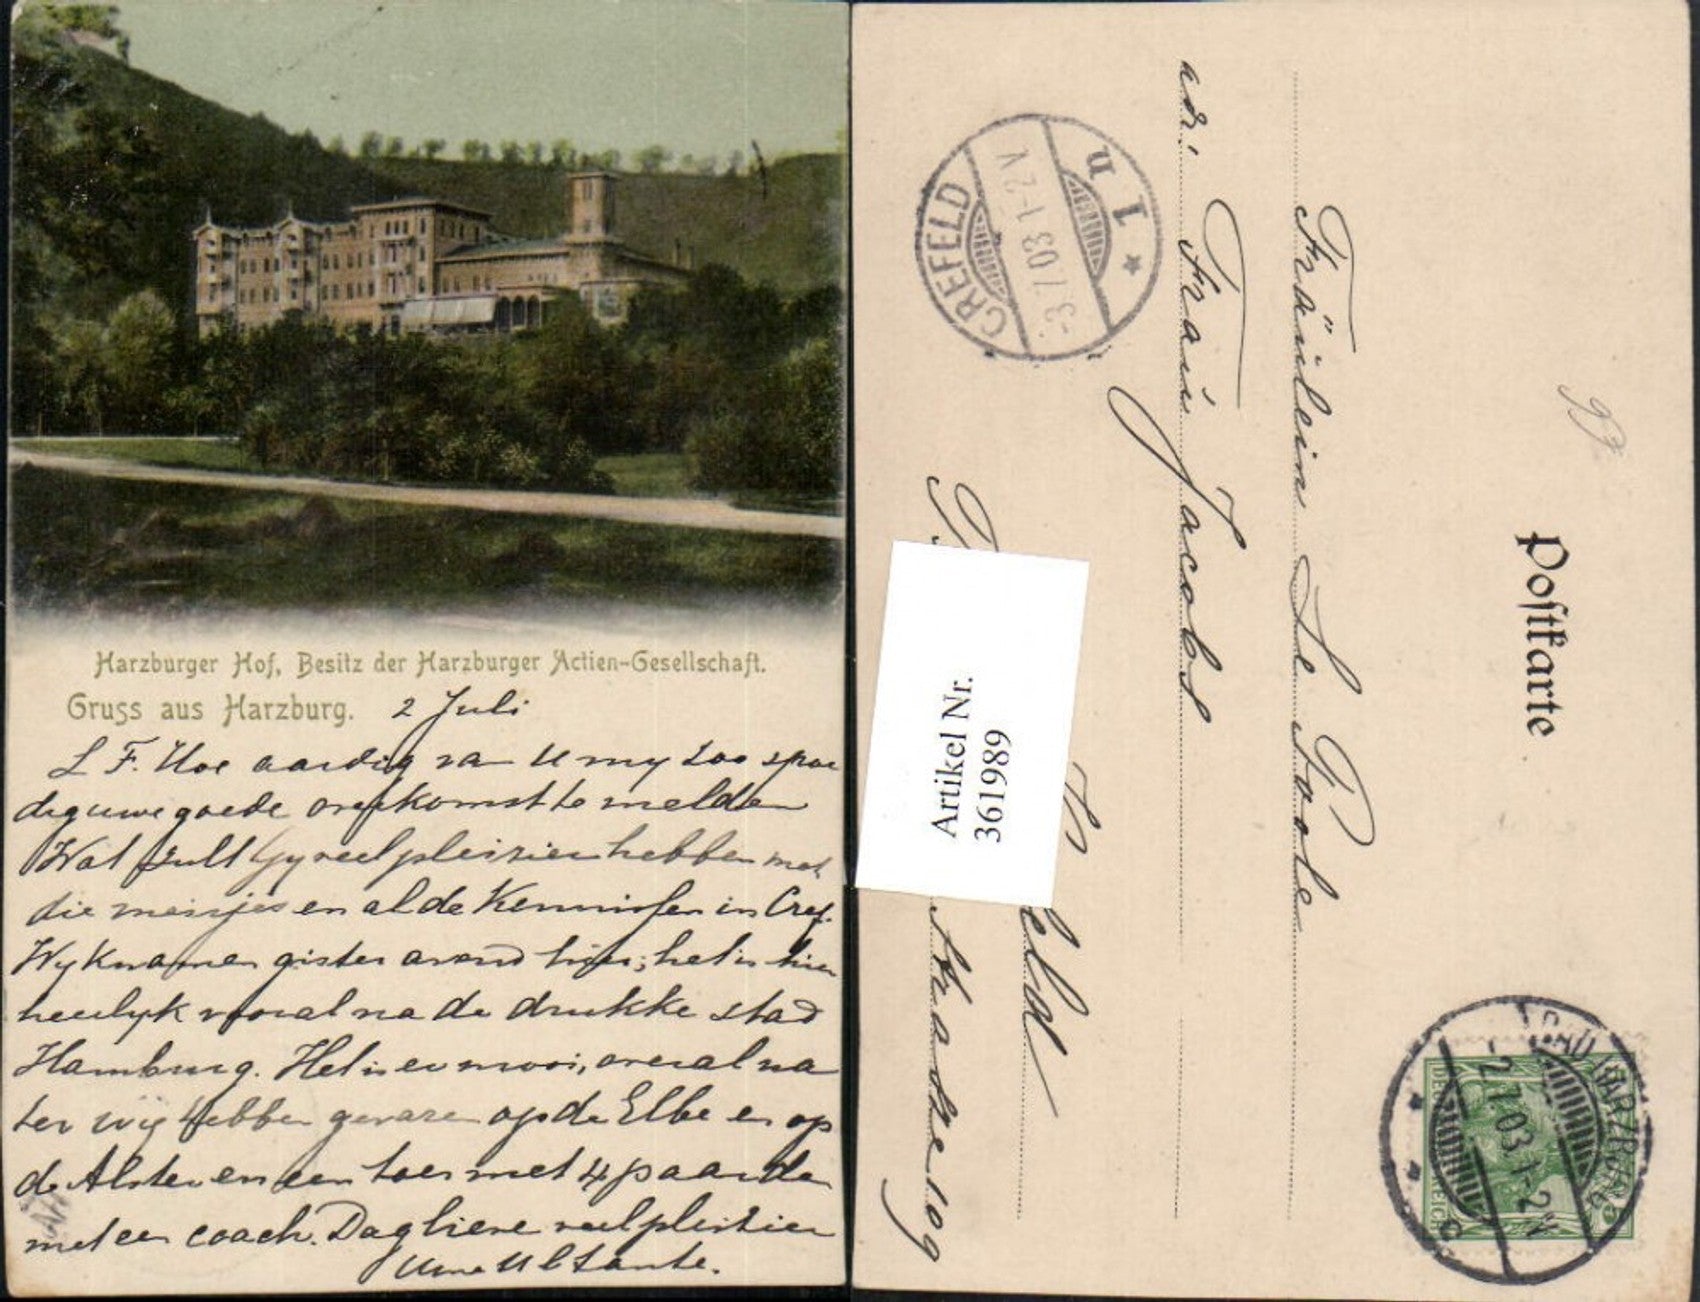 Harzburger Hof, Besitz der Harzburger Actien-Gesellschaft.
Gruss aus Harzburg. 2 Juli
L F. Hoe aardig van U my zoo spoe
dig uwe goede overkomst te melden
Wat zult Gy veel pleizier hebben met
die meisjes en al de Kennissen in Cref.
Wy kwamen gister avond hier; het is hier
heerlyk vooral na de drukke stad
Hamburg. Het is er mooi, overal wa
ter wij hebben gevaren op de Elbe en op
de Alster en een toer met 4 paarden
met een coach. Dag lieve veel pleizier
Uwe Tante.
Postkarte
Fräulein Le Poole
adr. Frau Jacobs
eld
109
Artikel Nr.
361989
CREFELD
-3.7.03.1-2V
* 1 n
BAD HARZBURG
-2.7.03.1-2N
DEUTSCHES REICH
5